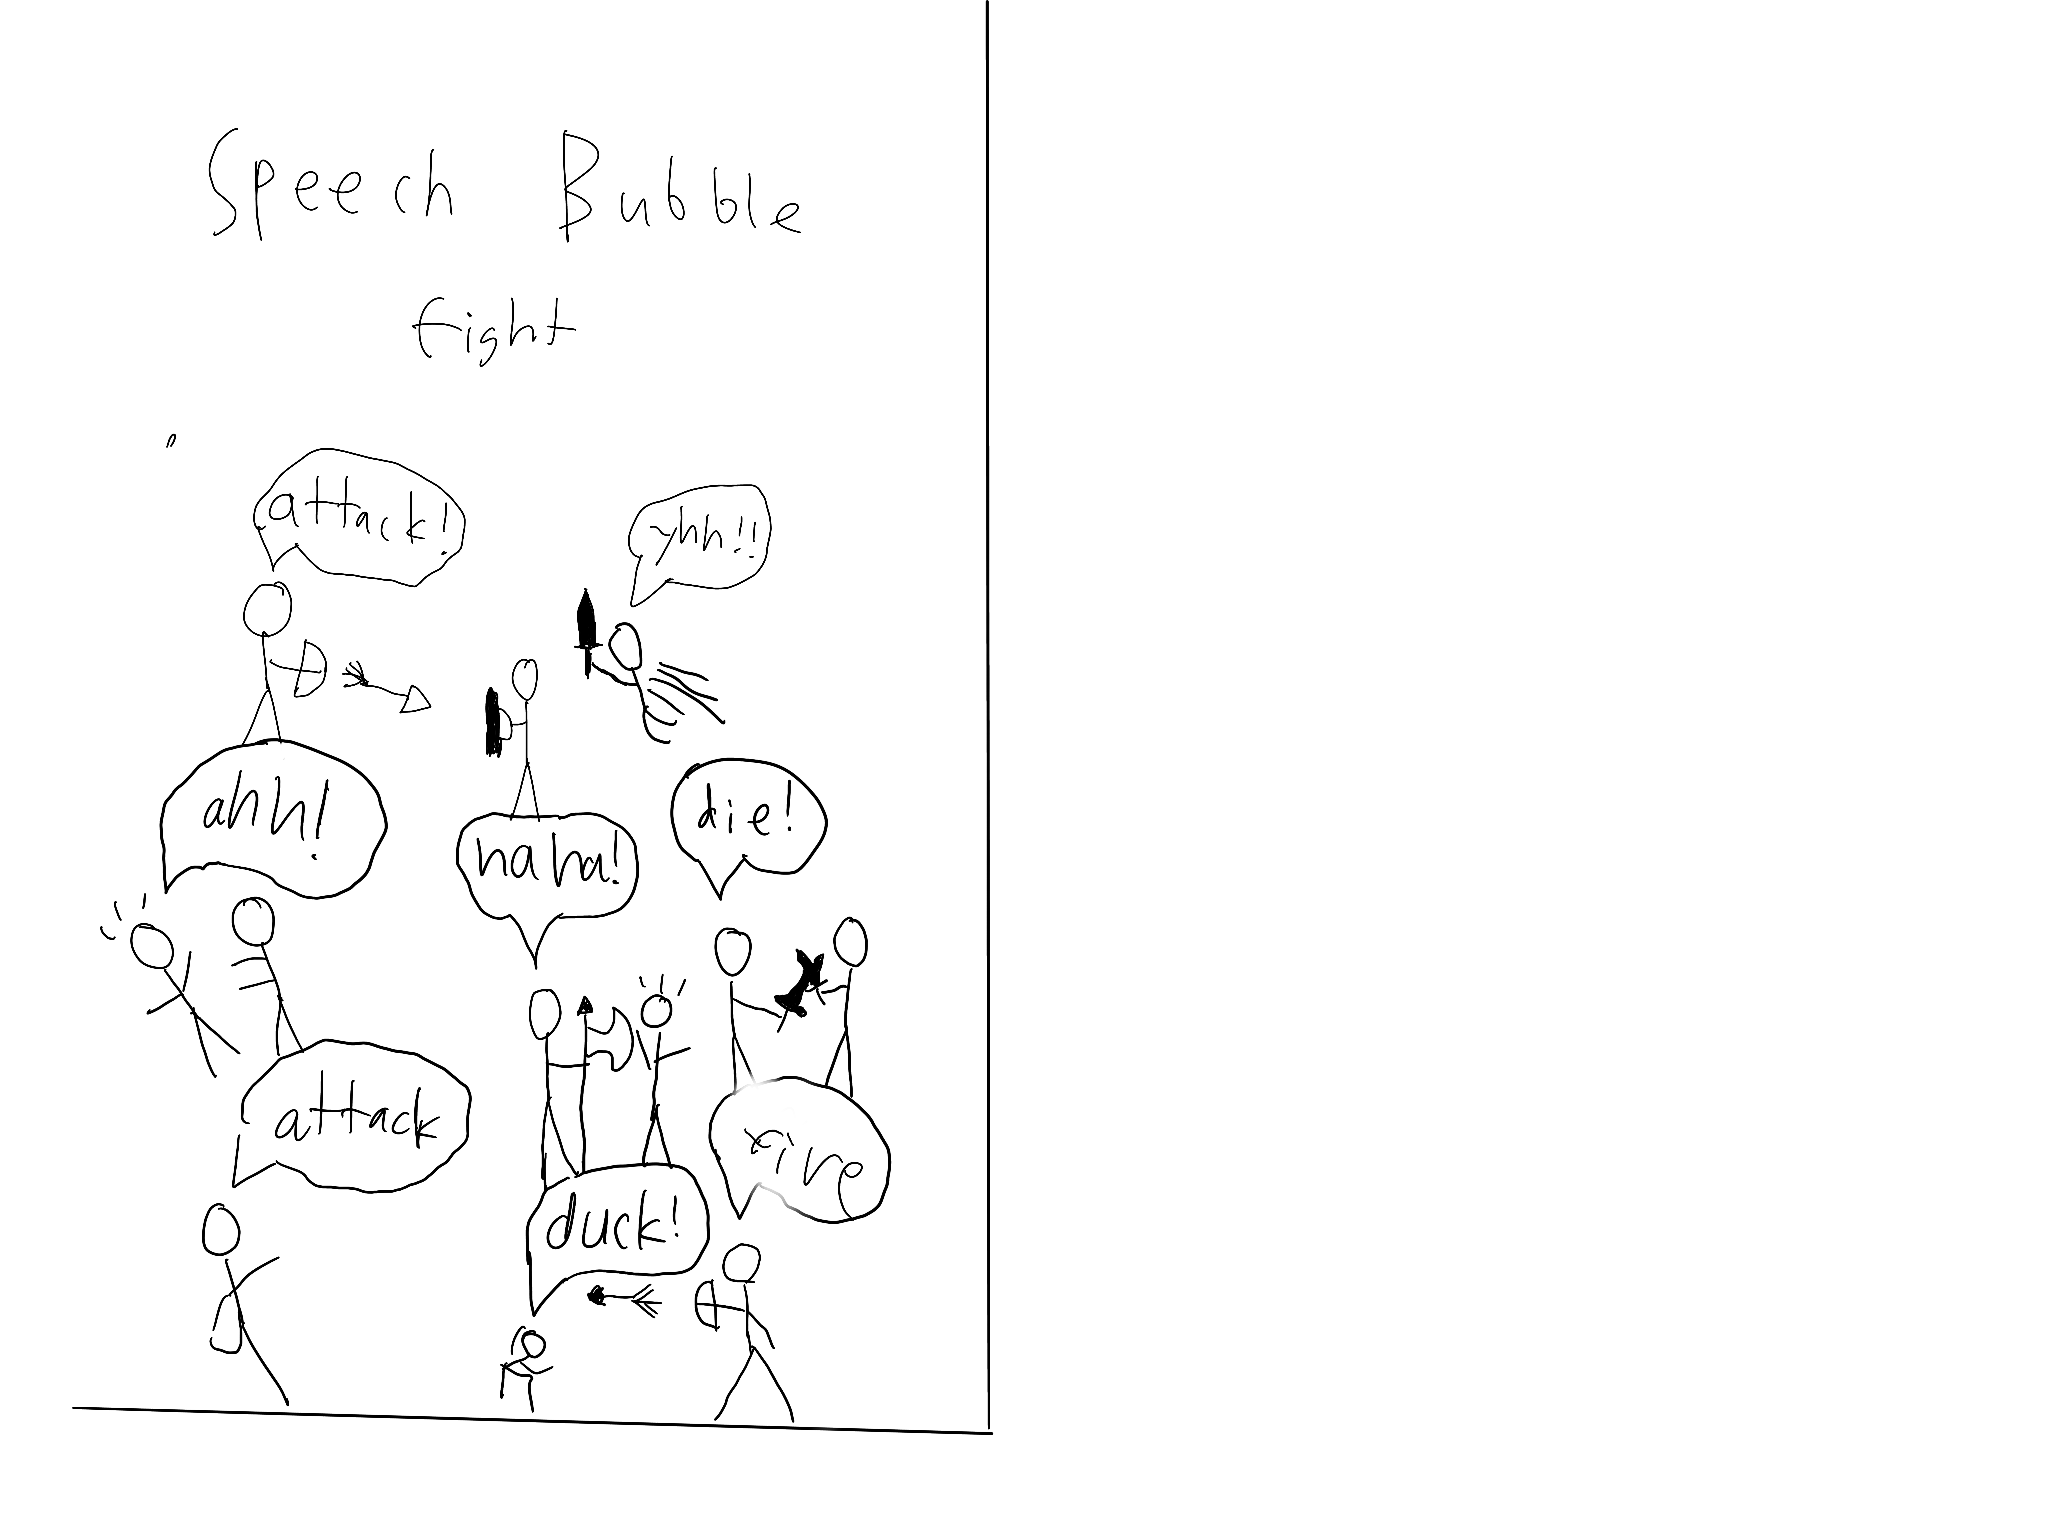 Speech Bubble
fight
attack!
yhh!!
ahh!
haha!
die!
attack
duck!
fire